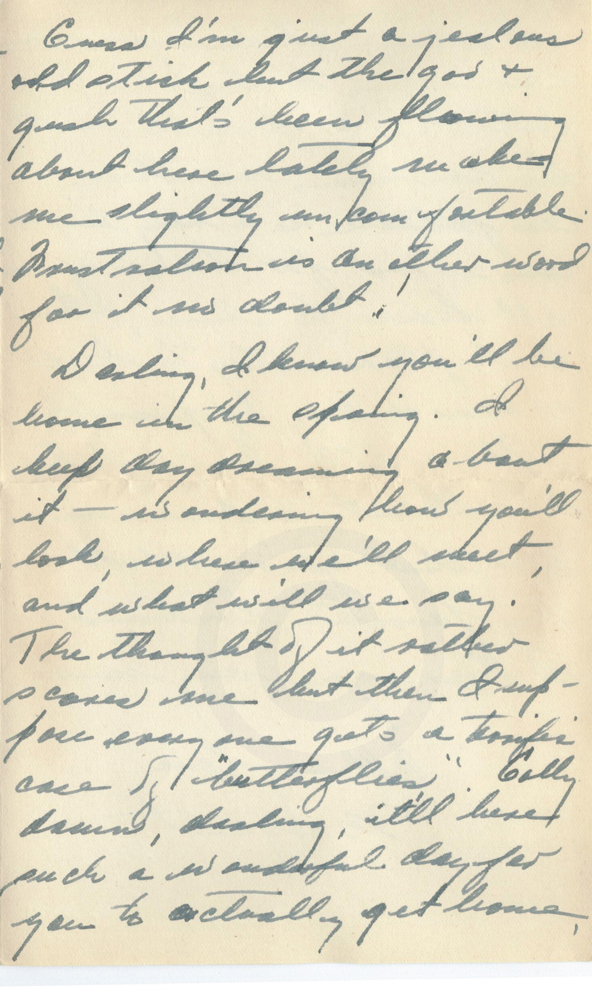 Guess I'm just a jealous
old stick but the goo +
gush that's been flowing
about here lately makes
me slightly uncomfortable.
Frustration is another word
for it no doubt!
Darling, I know you'll be
home in the spring. I
keep day dreaming about
it — wondering how you'll
look, where we'll meet,
and what will we say.
The thought of it rather
scares me but then I sup-
pose everyone gets a terrific
case of "butterflies". Golly
damn, darling, it'll be
such a wonderful day for
you to actually get home,